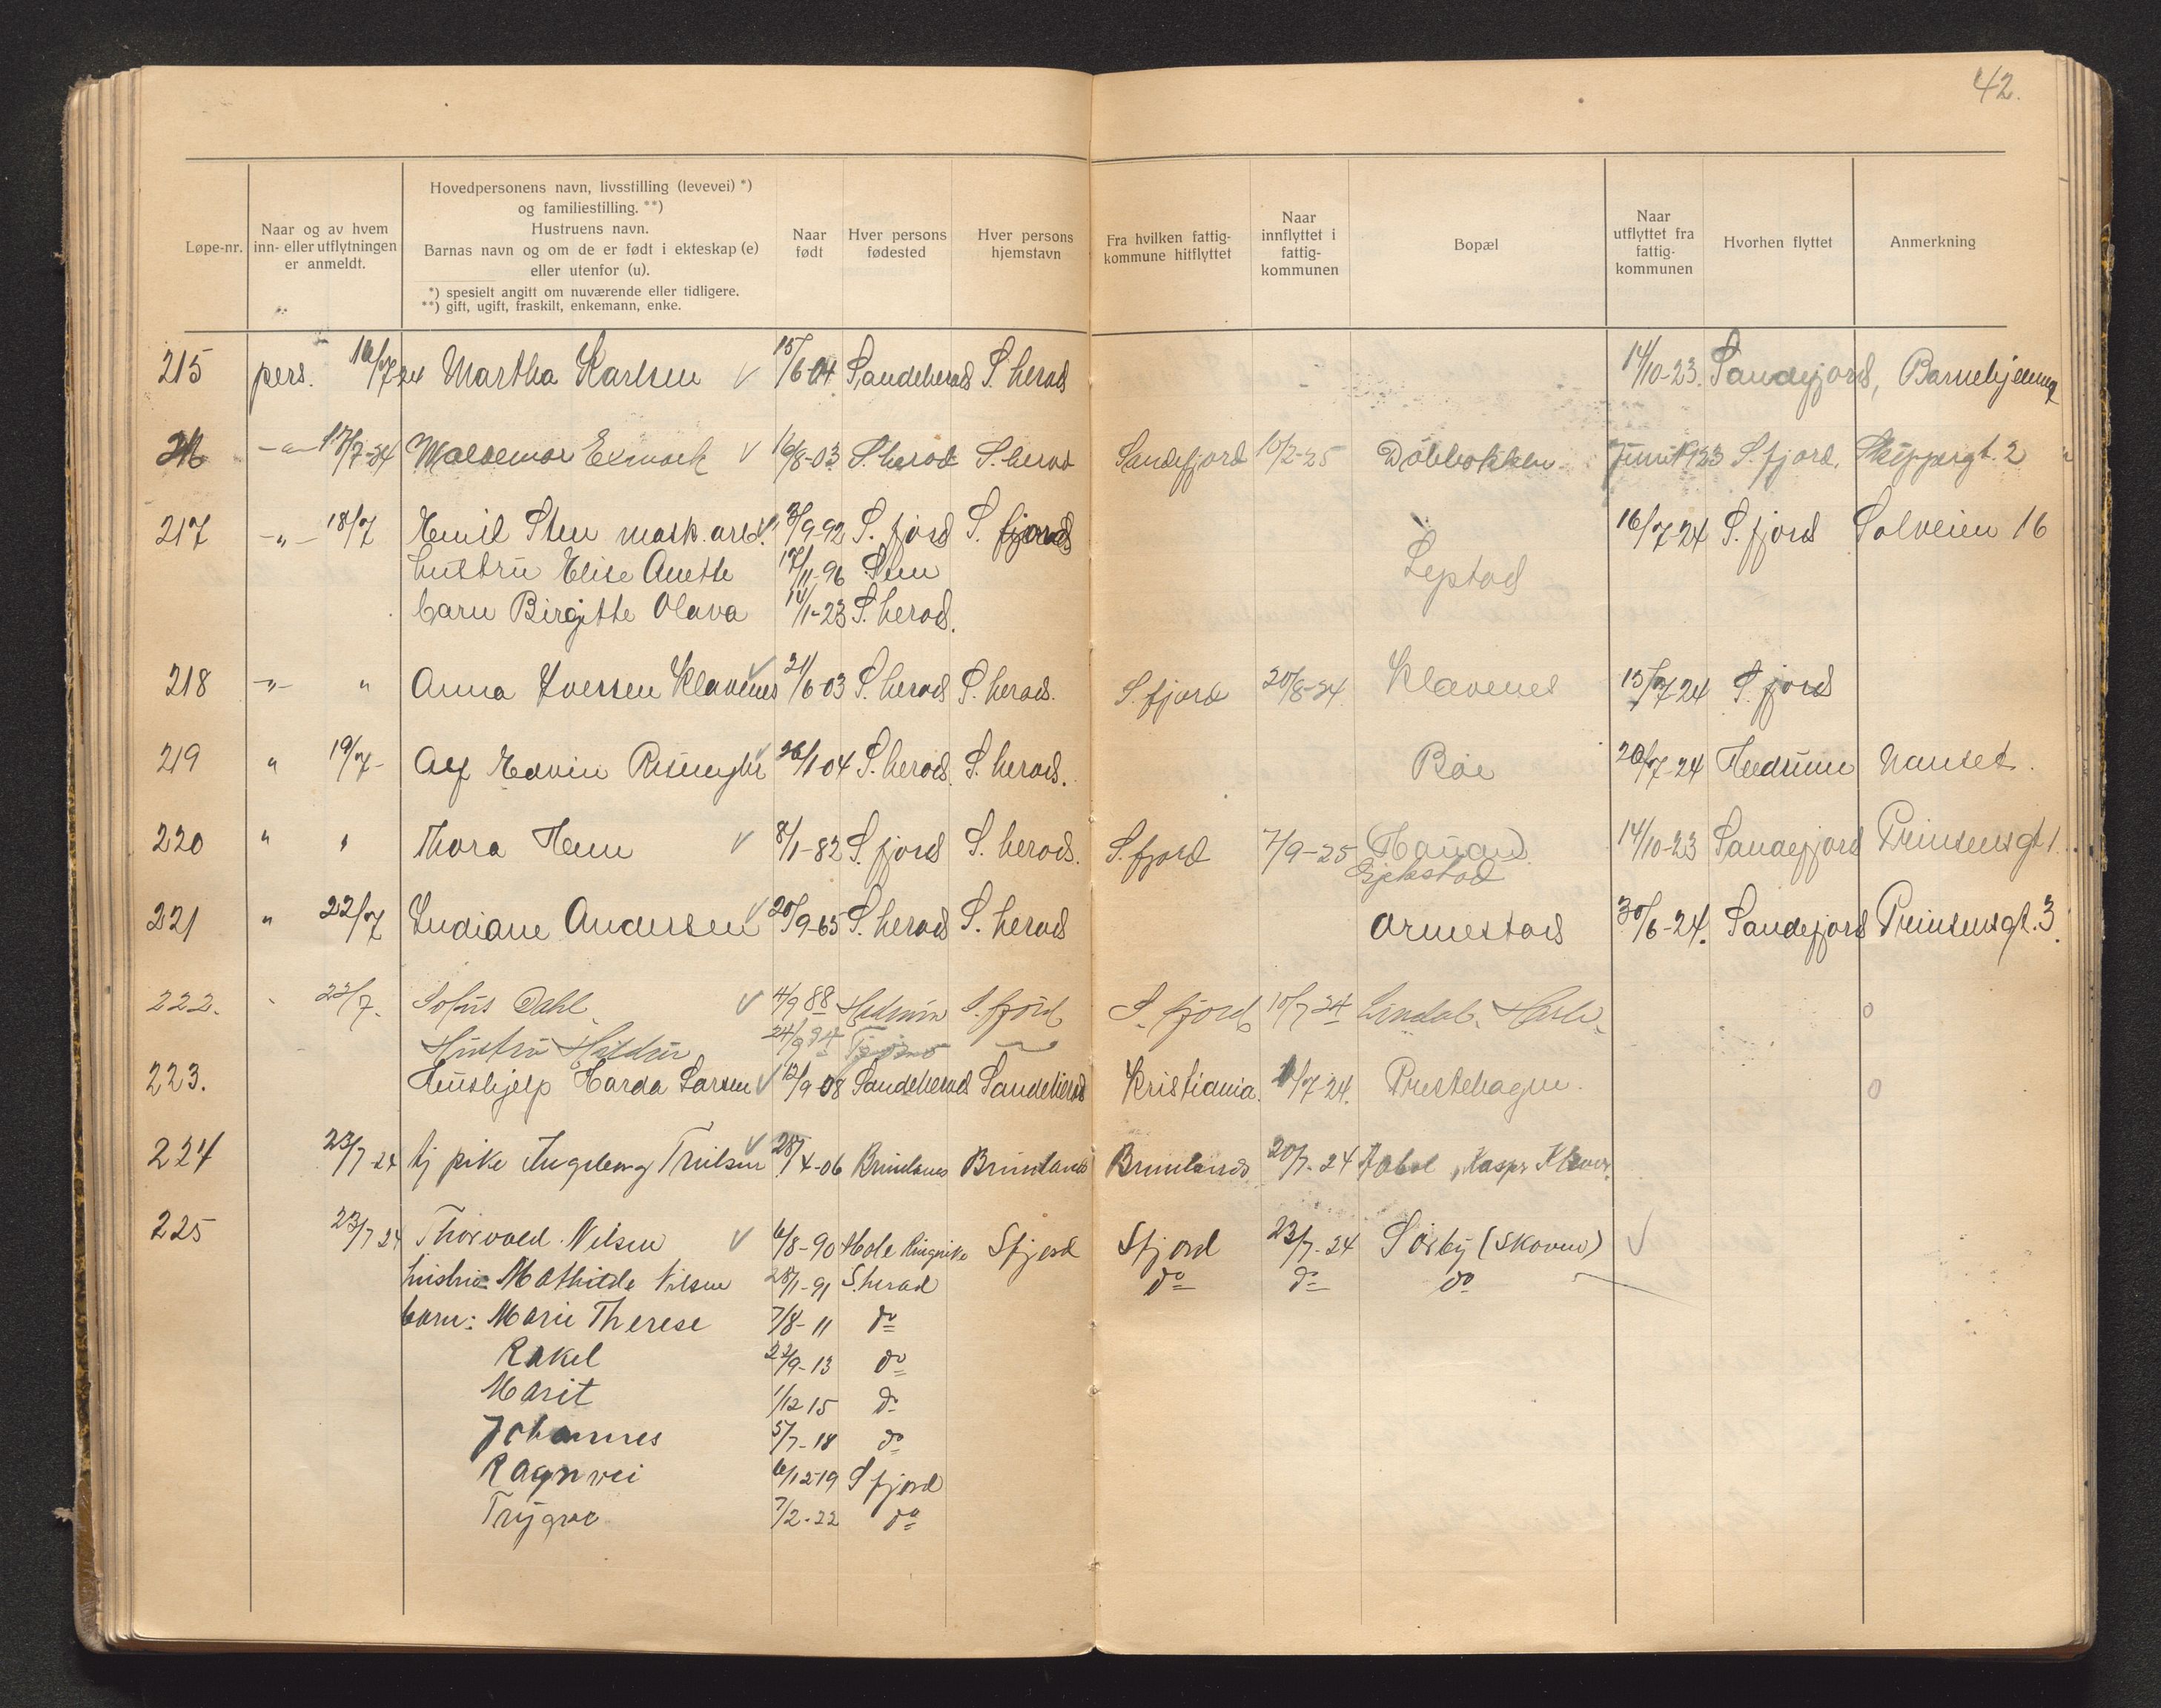 42.
Løpe-nr.
Naar og av hvem
inn- eller utflytningen
er anmeldt.
Hovedpersonens navn, livsstilling (levevei) *)
og familiestilling. **)
Hustruens navn.
Barnas navn og om de er født i ekteskap (e)
eller utenfor (u).
*) spesielt angitt om nuværende eller tidligere.
**) gift, ugift, fraskilt, enkemann, enke.
Naar
født
Hver persons
fødested
Hver persons
hjemstavn
Fra hvilken fattig-
kommune hitflyttet
Naar
innflyttet i
fattig-
kommunen
Bopæl
Naar
utflyttet fra
fattig-
kommunen
Hvorhen flyttet
Anmerkning
215 pers. 16/7 24 Martha Karlsen 15/6-04 Sandeherad S. herad 14/10-23. Sandefjord,
17/7-24 16/8-03 S. herad S. herad Sandefjord 10/2-25 Juni 1923 S. fjord, Skippergt. 2
217 -"- 18/7 Emil Sten mask. arb. 3/9-92 S. fjord S. fjord 16/7-24 S. fjord Solveien 16
hustru Elise Anette 17/11-96 Sem
barn Birgitte Olava 14/1-23 S. herad.
218 -"- " Anna Iversen Klavenes 21/6 03 S. herad S. herad. S. fjord 20/8-24 Klavenes 15/7-24 S. fjord
219 " 19/7- Alf Edvin 26/1 04 S. herad. S. herad. Bøe 20/7-24 Hedrum Nanset.
220 " " Thora Hem 8/1-82 S. fjord S. herad. S. fjord 7/9-25 (Haugan) 14/10-23 Sandefjord Prinsensgt 1.
Gjekstad
221 " 22/7 Andersen 20/9-65 S. herad S. herad Ormestad 30/6-24. Sandefjord Prinsensgt. 3.
222. " 22/7. Sofus Dahl 4/9 88 Hedrum S. fjord S. fjord 10/7 24 Lindal. 0
Hustru 24/9 94
223. Hushjelp Harda Larsen 12/9-08 Sandeherad Sandeherad Kristiania. 1/7-24. Prestehagen. 0
224 23/7-24 tj pike Ingeborg 28/4-06 Brunlanes Brunlanes Brunlanes. 20/7-24
225 23/7 24 Thorvald Nilsen 6/8-90 Hole Ringerike Sfjord Sfjord 23/7-24 Sørby (Skoven)
hustru: Mathilde Nilsen 28/1-91 S.herad do do do
barn: Marie Therese 7/8-11 do
Rakel 22/9-13 do
Marit 1/12 15 do
Johannes 5/7-18 do
Ragnvei 6/12-19 S fjord
Trygve 7/2-22 do